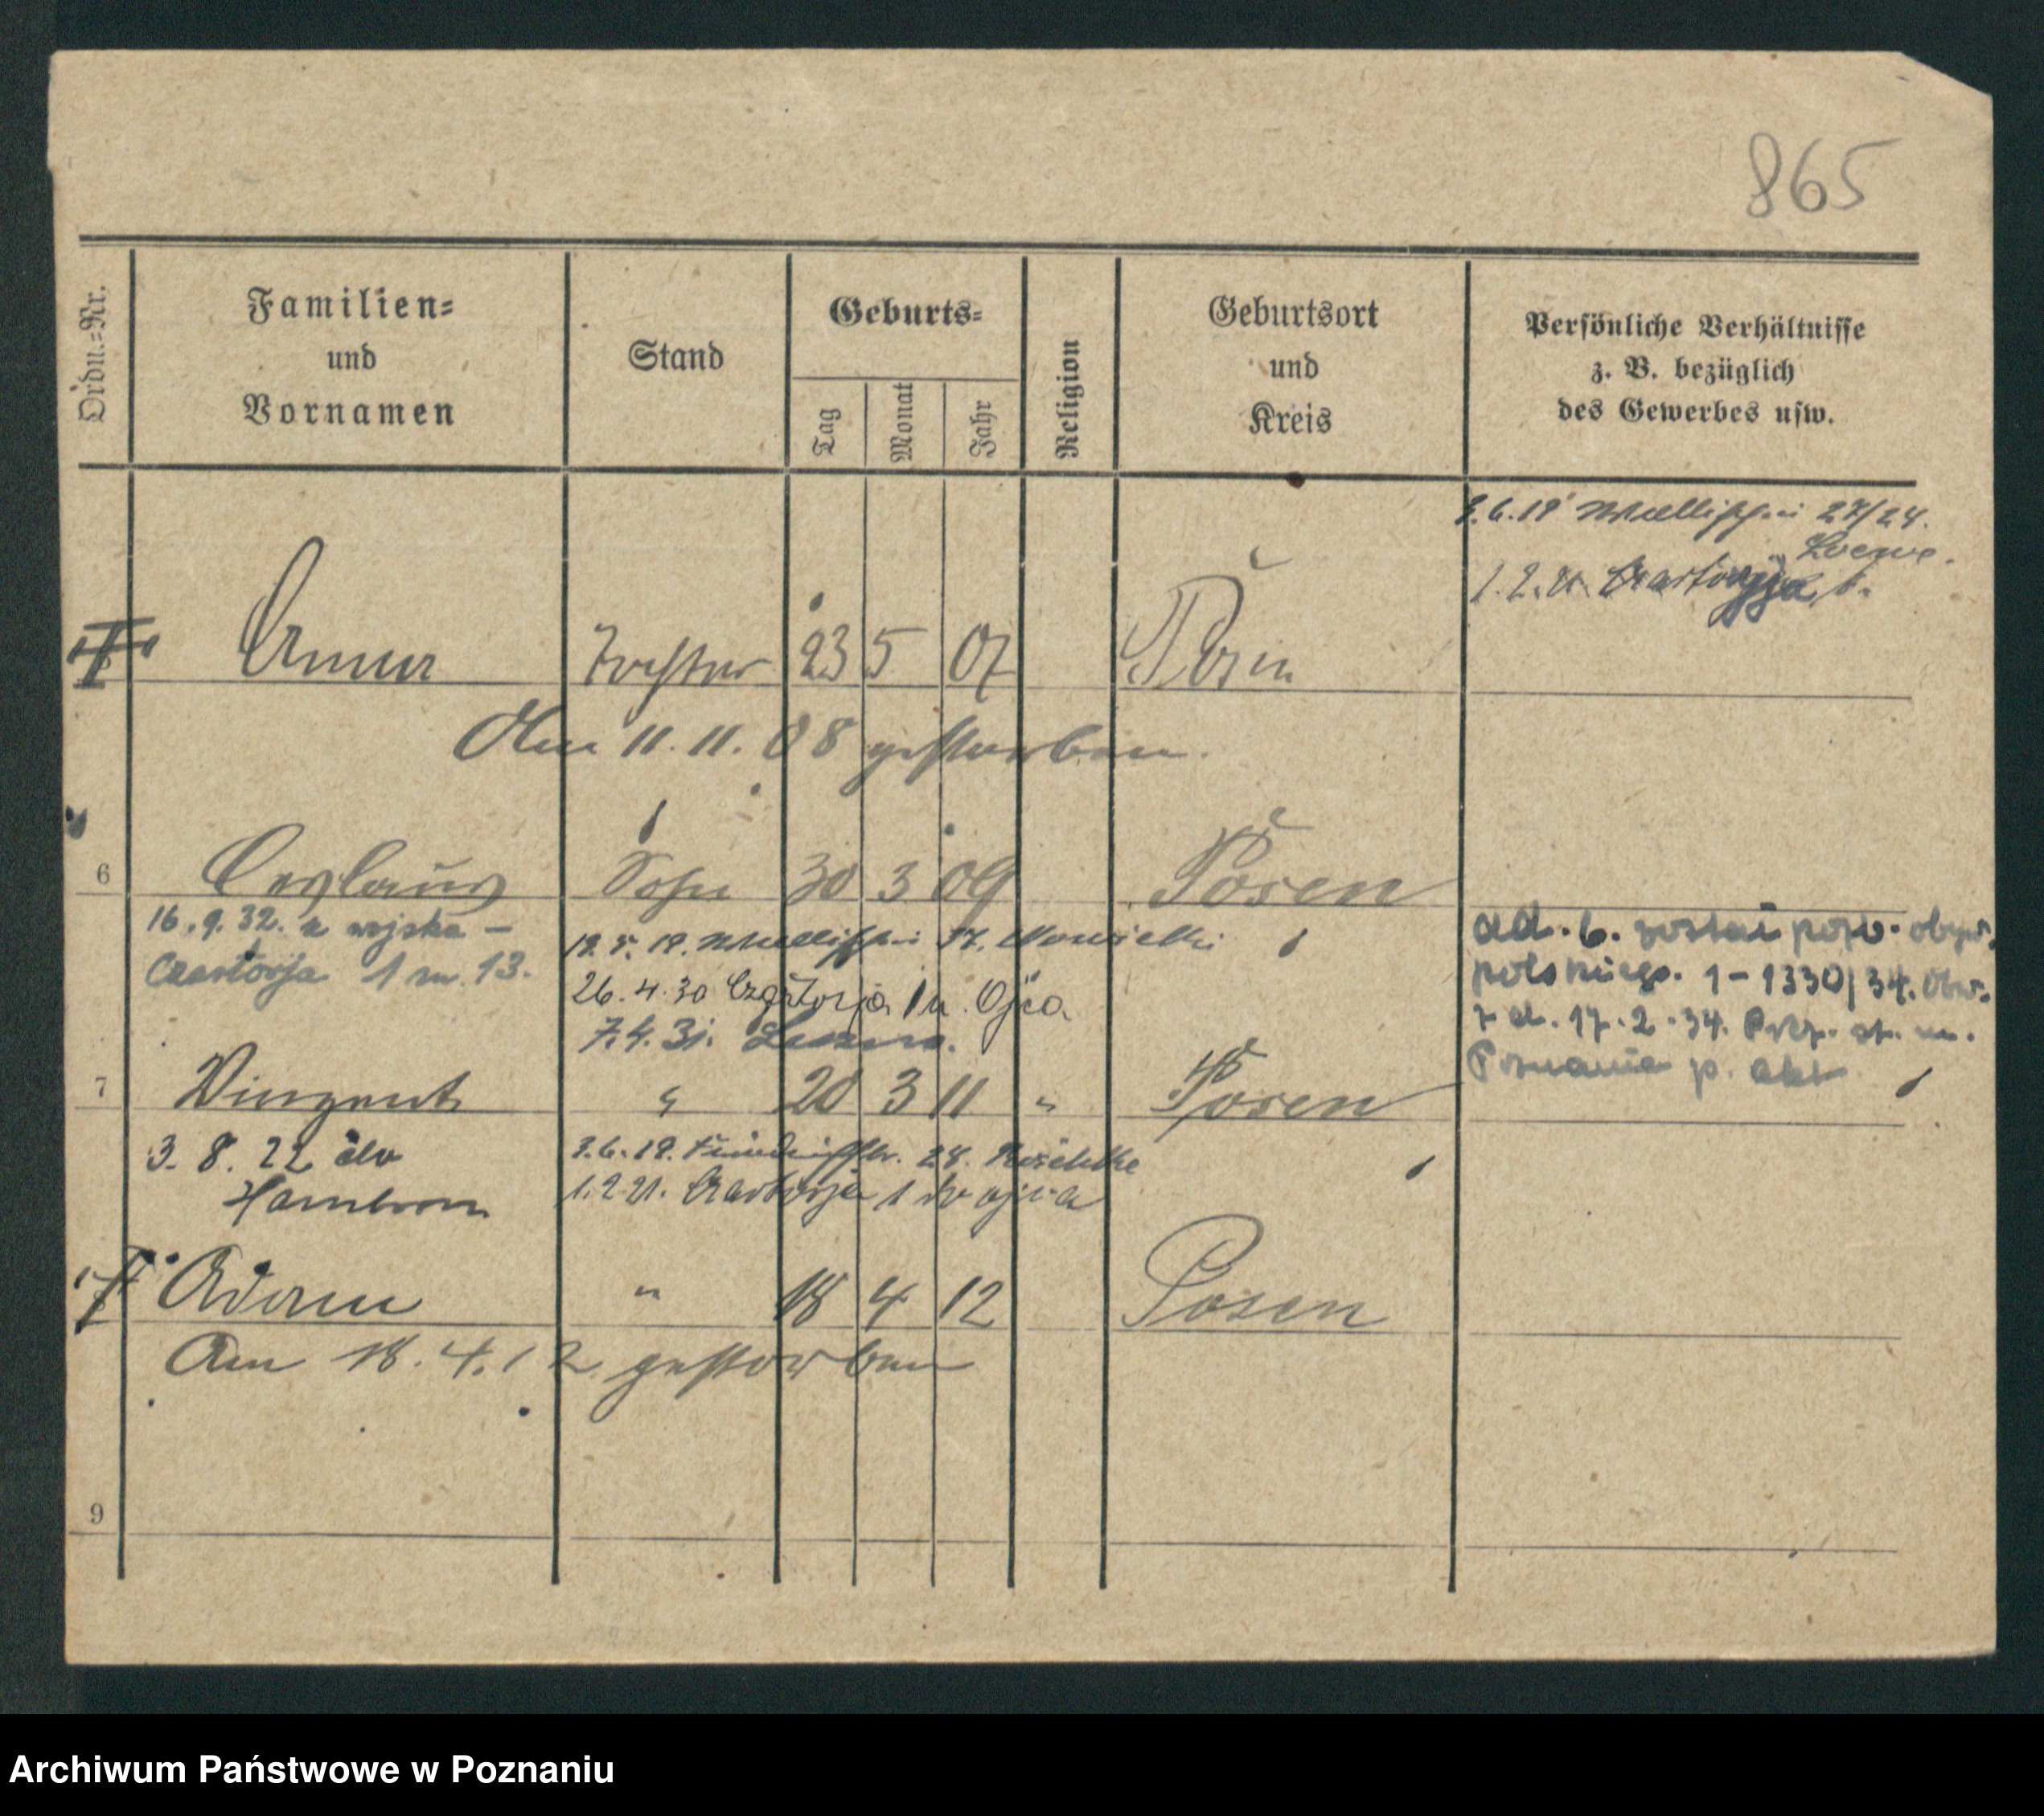 865
Ordn.-Nr.
Familien- und Vornamen
Stand
Geburts-
Tag
Monat
Jahr
Religion
Geburtsort und Kreis
Persönliche Verhältnisse z. B. bezüglich des Gewerbes usw.
3.6.19 Wallischei 27/24.
Loewe.
1.2.21. Czartorja 1.
Anna Tochter 23 5 07 Posen
Am 11.11.08 gestorben.
6 Ceslaus Sohn 30 3 09 Posen
16.9.32. z wojska –
Czartorja 1 m. 13.
Wallischei 17. Nowicki
26.4.30 Czartorja 1 u. Ojca.
7.4.31.
ad. 6. został pośw. obyw.
polskiego. 1–1330/34.
z d. 17.2.34.
Poznania p. akt
7 Vinzent " 20 3 11 " Posen
3.8.22 do
Hamborn
3.6.19. 24.
1.2.21. Czartorja 1 do ojca
Adam " 18 4 12 Posen
Am 18.4.12 gestorben
9
Archiwum Państwowe w Poznaniu